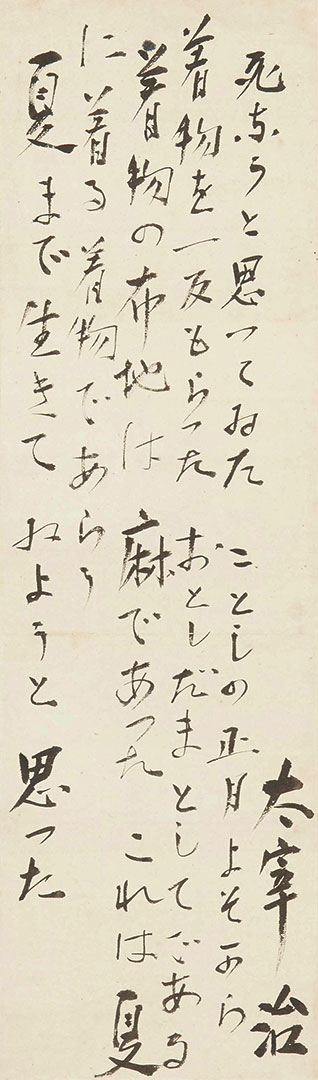 死なうと思つてゐた ことしの正月よそから
着物を一反もらつた おとしだまとしてである
着物の布地は 麻であつた これは夏
に着る着物であらう
夏まで生きて ゐようと 思つた
太宰治